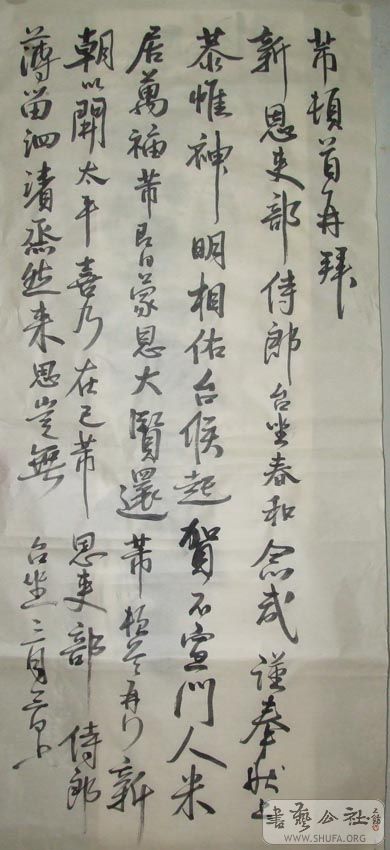 芾頓首再拜
新恩吏部侍郎台坐春和念咸謹奉狀上
恭惟神明相佑台候起賀不宣門人米
居萬福芾即日蒙恩大賢還芾頓首再拜新
朝以開太平喜乃在己芾恩吏部侍郎
薄留泗濱烝然来思豈無台坐三月
書藝公社
WWW.SHUFA.ORG